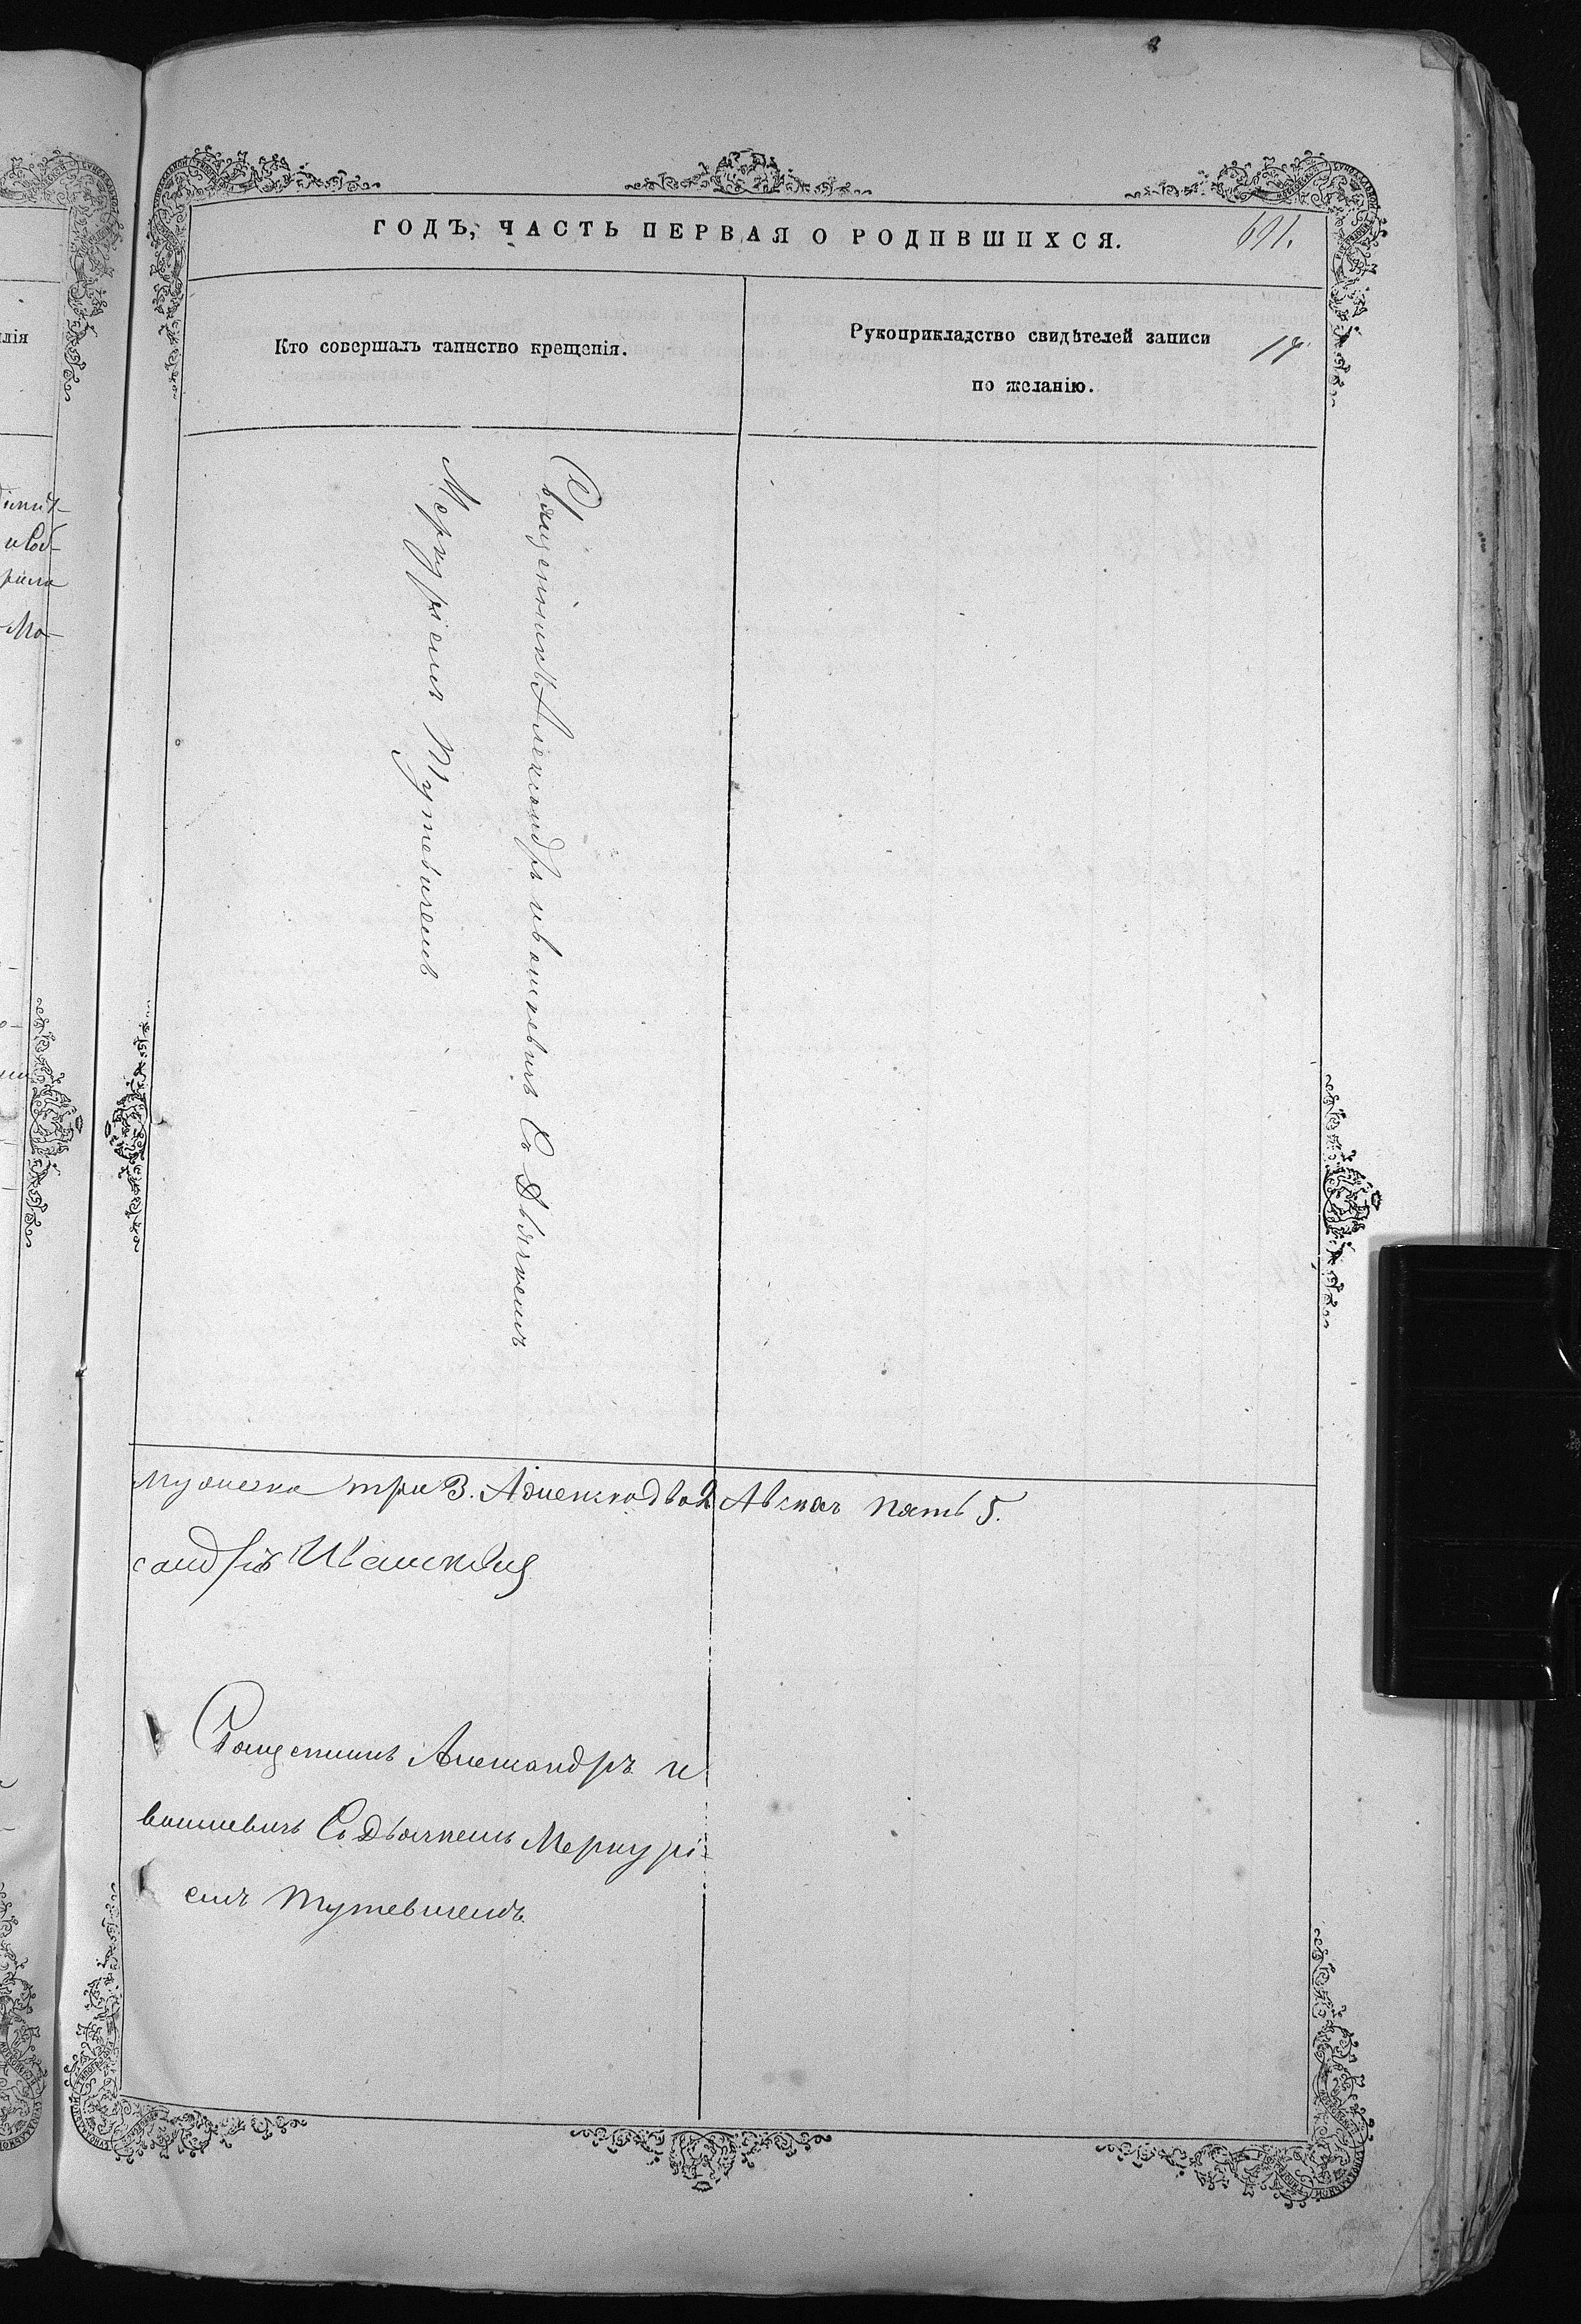 ГОДЪ, ЧАСТЬ ПЕРВАЯ О РОДИВШИХСЯ.
691.
Кто совершалъ таинство крещенія.
Рукоприкладство свидѣтелей записи
по желанію.
17.
лія
Священникъ Александръ Ивашкевичъ Съ Дьячкемъ
Меркуріемъ Тутевичемъ
Мужеска три 3. Аженска два 2 Авсихъ пять 5.
сандръ Ивашкевич
Священникъ Александръ И
вашкевичъ Съ Дьячкемъ Меркурі-
емъ Тутевичемъ.